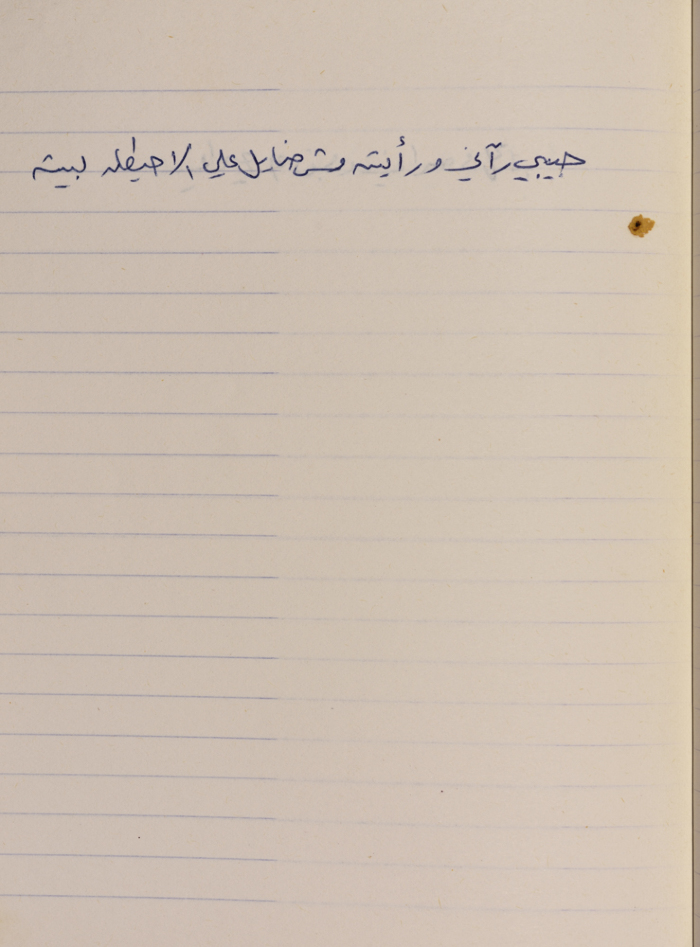 حبيبي رآني ورأيته ومش ضايل علي الا حيطله لبيته